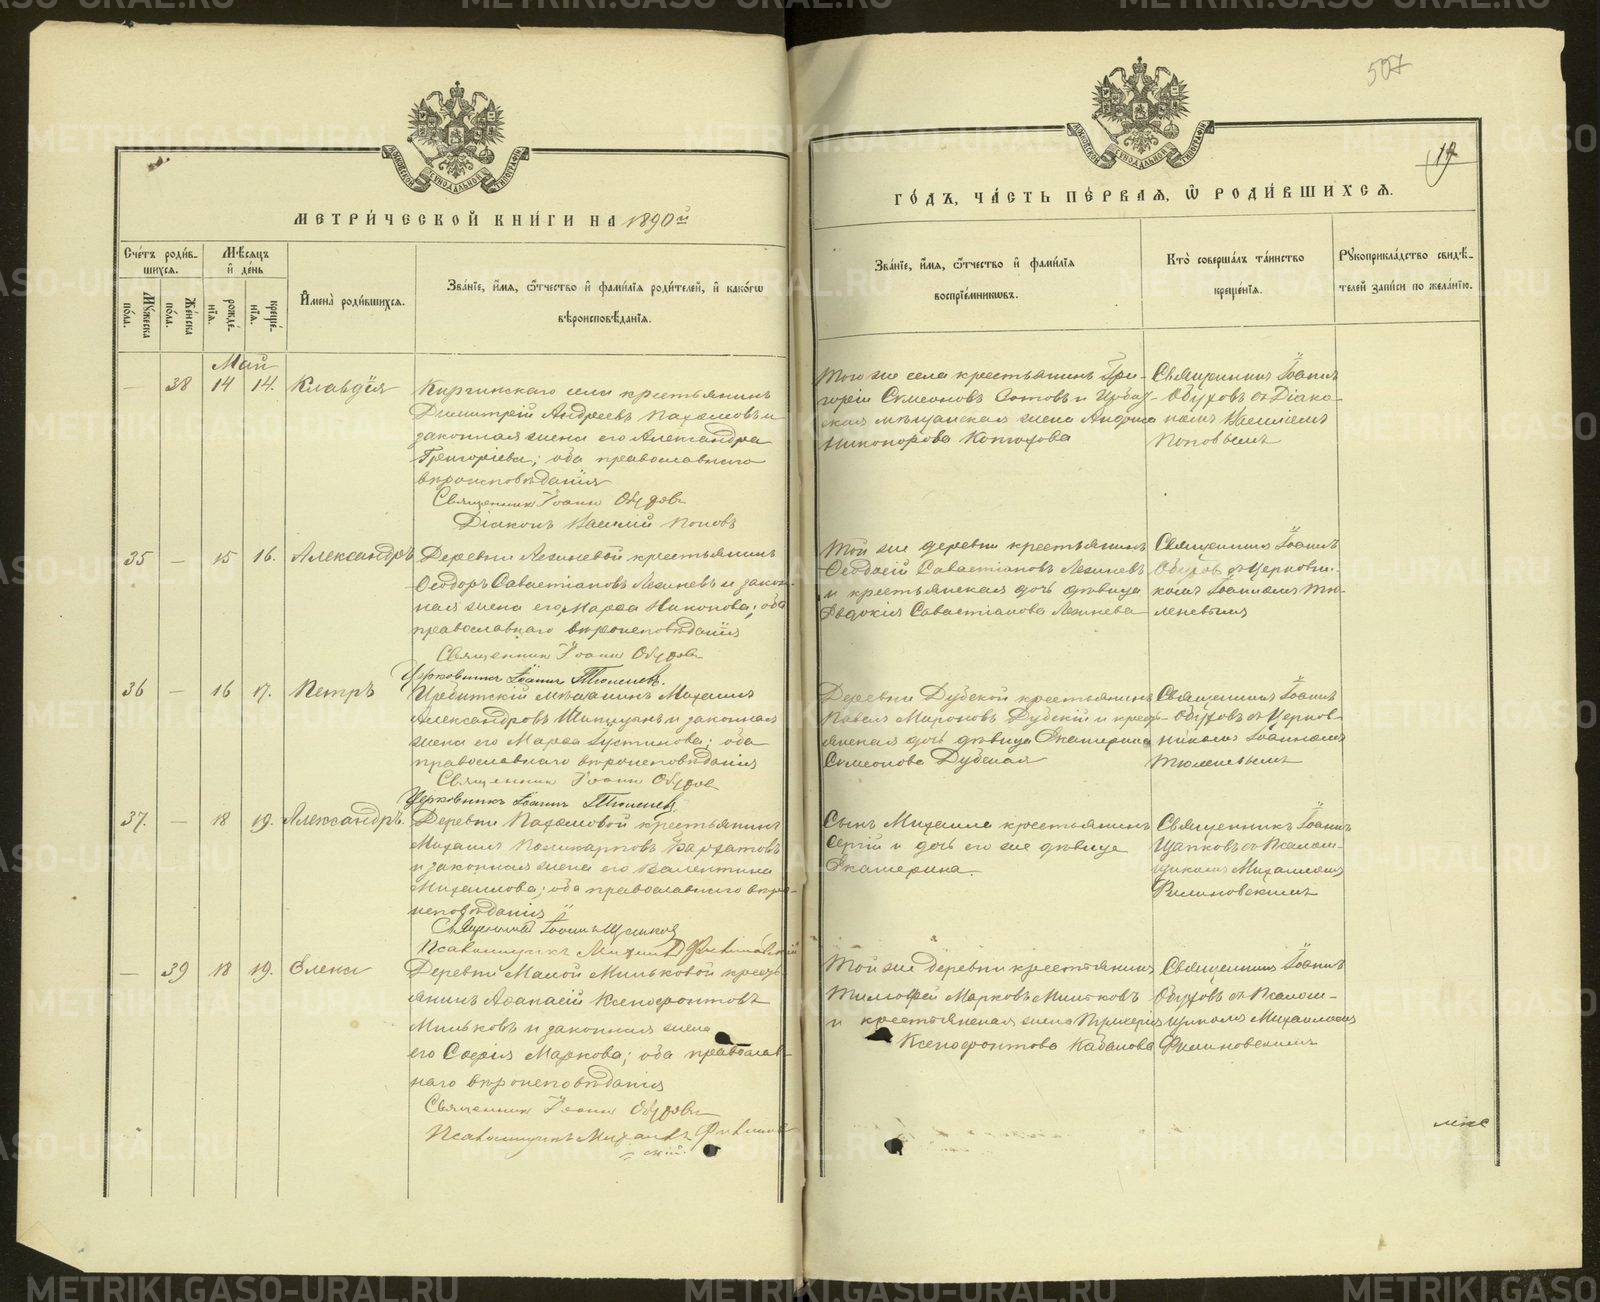 507
19
МЕТРИ́ЧЕСКОЙ КНИ́ГИ НА 1890й
ГО́ДЪ, ЧА́СТЬ ПЕ́РВАЯ, Ѡ҆ РОДИ́ВШИХСЯ.
Сче́тъ роди́в-
шихся.
Мѣ́сяцъ
и҆ де́нь
Мꙋ́жеска по́ла.
Же́нска по́ла.
рожде́-нїя.
креще́-нїя.
И҆мена̀ роди́вшихся.
Зва́нїе, и҆́мя, ѻ҆́тчество и҆ фами́лїя роди́телей, и҆ како́гѡ
вѣроисповѣ́данїя.
Зва́нїе, и҆́мя, ѻ҆́тчество и҆ фами́лїя
воспрїе́мникѡвъ.
Кто̀ соверша́лъ та́инство
креще́нїя.
Рꙋкоприкла́дство свидѣ́-
телей за́писи по жела́нїю.
Май
— 38 14 14. Клавдія
Киргинскаго села крестьянинъ
Димитрій Андреевъ Пахомовъ и
законная жена его Александра
Григоріева; оба православнаго
вѣроисповѣданія
Священник Іоанн Обуховъ
Діаконъ Василій Поповъ
Того же села крестьянинъ Гри-
горій Симеоновъ Зотовъ и Ирбит-
ская мѣщанская жена
Никонорова
Священникъ Іоаннъ
Обуховъ съ Діако-
номъ Василіемъ
Поповымъ
35 — 15 16. Александръ
Деревни крестьянинъ
Ѳеодоръ Савастіановъ и закон-
ная жена его Марѳа Никонова; оба
православнаго вѣроисповѣданія
Священник Іоанн Обуховъ
Церковникъ Іоаннъ Тюленев.
Той же деревни крестьянинъ
Ѳеодосій Савастіановъ
и крестьянская дочь дѣвица
Евдокія Савастіанова
Священникъ Іоаннъ
Обуховъ съ Церковни-
комъ Іоанномъ Тю-
леневымъ
36 — 16 17. Петръ
Ирбитскій мѣщанинъ Михаилъ
Александровъ и законная
жена его Марѳа Іустинова; оба
православнаго вѣроисповѣданія
Священник Іоанн Обухов
Церковникъ Іоаннъ Тюленев.
Деревни Дубской крестьянинъ
Павелъ Мироновъ Дубскій и кресть-
янская дочь дѣвица Екатерина
Симеонова Дубская
Священникъ Іоаннъ
Обуховъ съ Церков-
никомъ Іоанномъ
Тюленевымъ
37. — 18 19. Александръ.
Деревни Пахомовой крестьянинъ
Михаилъ Поликарповъ Бархатовъ
и законная жена его Валентина
Михаилова; оба православнаго вѣро-
исповѣданія
Священникъ Іоаннъ Щапков
Псаломщикъ Михаил Филиновскій
Сынъ Михаила крестьянинъ
Сергій и дочь его же дѣвица
Екатерина.
Священникъ Іоаннъ
Щапковъ съ Псалом-
щикомъ Михаиломъ
Филиновскимъ
— 39 18 19. Елена
Деревни Малой Мильковой кресть-
янинъ Аѳанасій Ксенофонтовъ
Мильковъ и законная жена
его Софія Маркова; оба православ-
наго вѣроисповѣданія
Священник Іоанн Обуховъ
Псаломщикъ Михаилъ Филинов-
скій.
Той же деревни крестьянинъ
Тимофей Марковъ Мильковъ
и крестьянская жена Гликерія
Ксенофонтова Кабакова
Священникъ Іоаннъ
Обуховъ съ Псалом-
щикомъ Михаиломъ
Филиновскимъ
METRIKI.GASO-URAL.RU